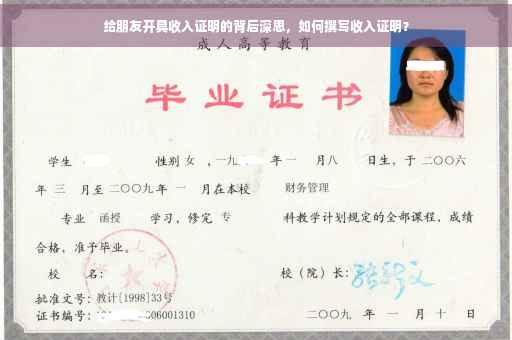 给朋友开具收入证明的背后深思，如何撰写收入证明?
成人高等教育
毕业证书
学生 性别 女 ，一九 年一 月八 日生，于二〇〇六
年 三 月至二〇〇九年 一 月在本校 财务管理
专业 函授 学习，修完 专 科教学计划规定的全部课程，成绩
合格，准予毕业。
校 名： 校（院）长：
批准文号：教计[1998]33号
证书编号： 06001310 二〇〇九 年 一 月 十 日